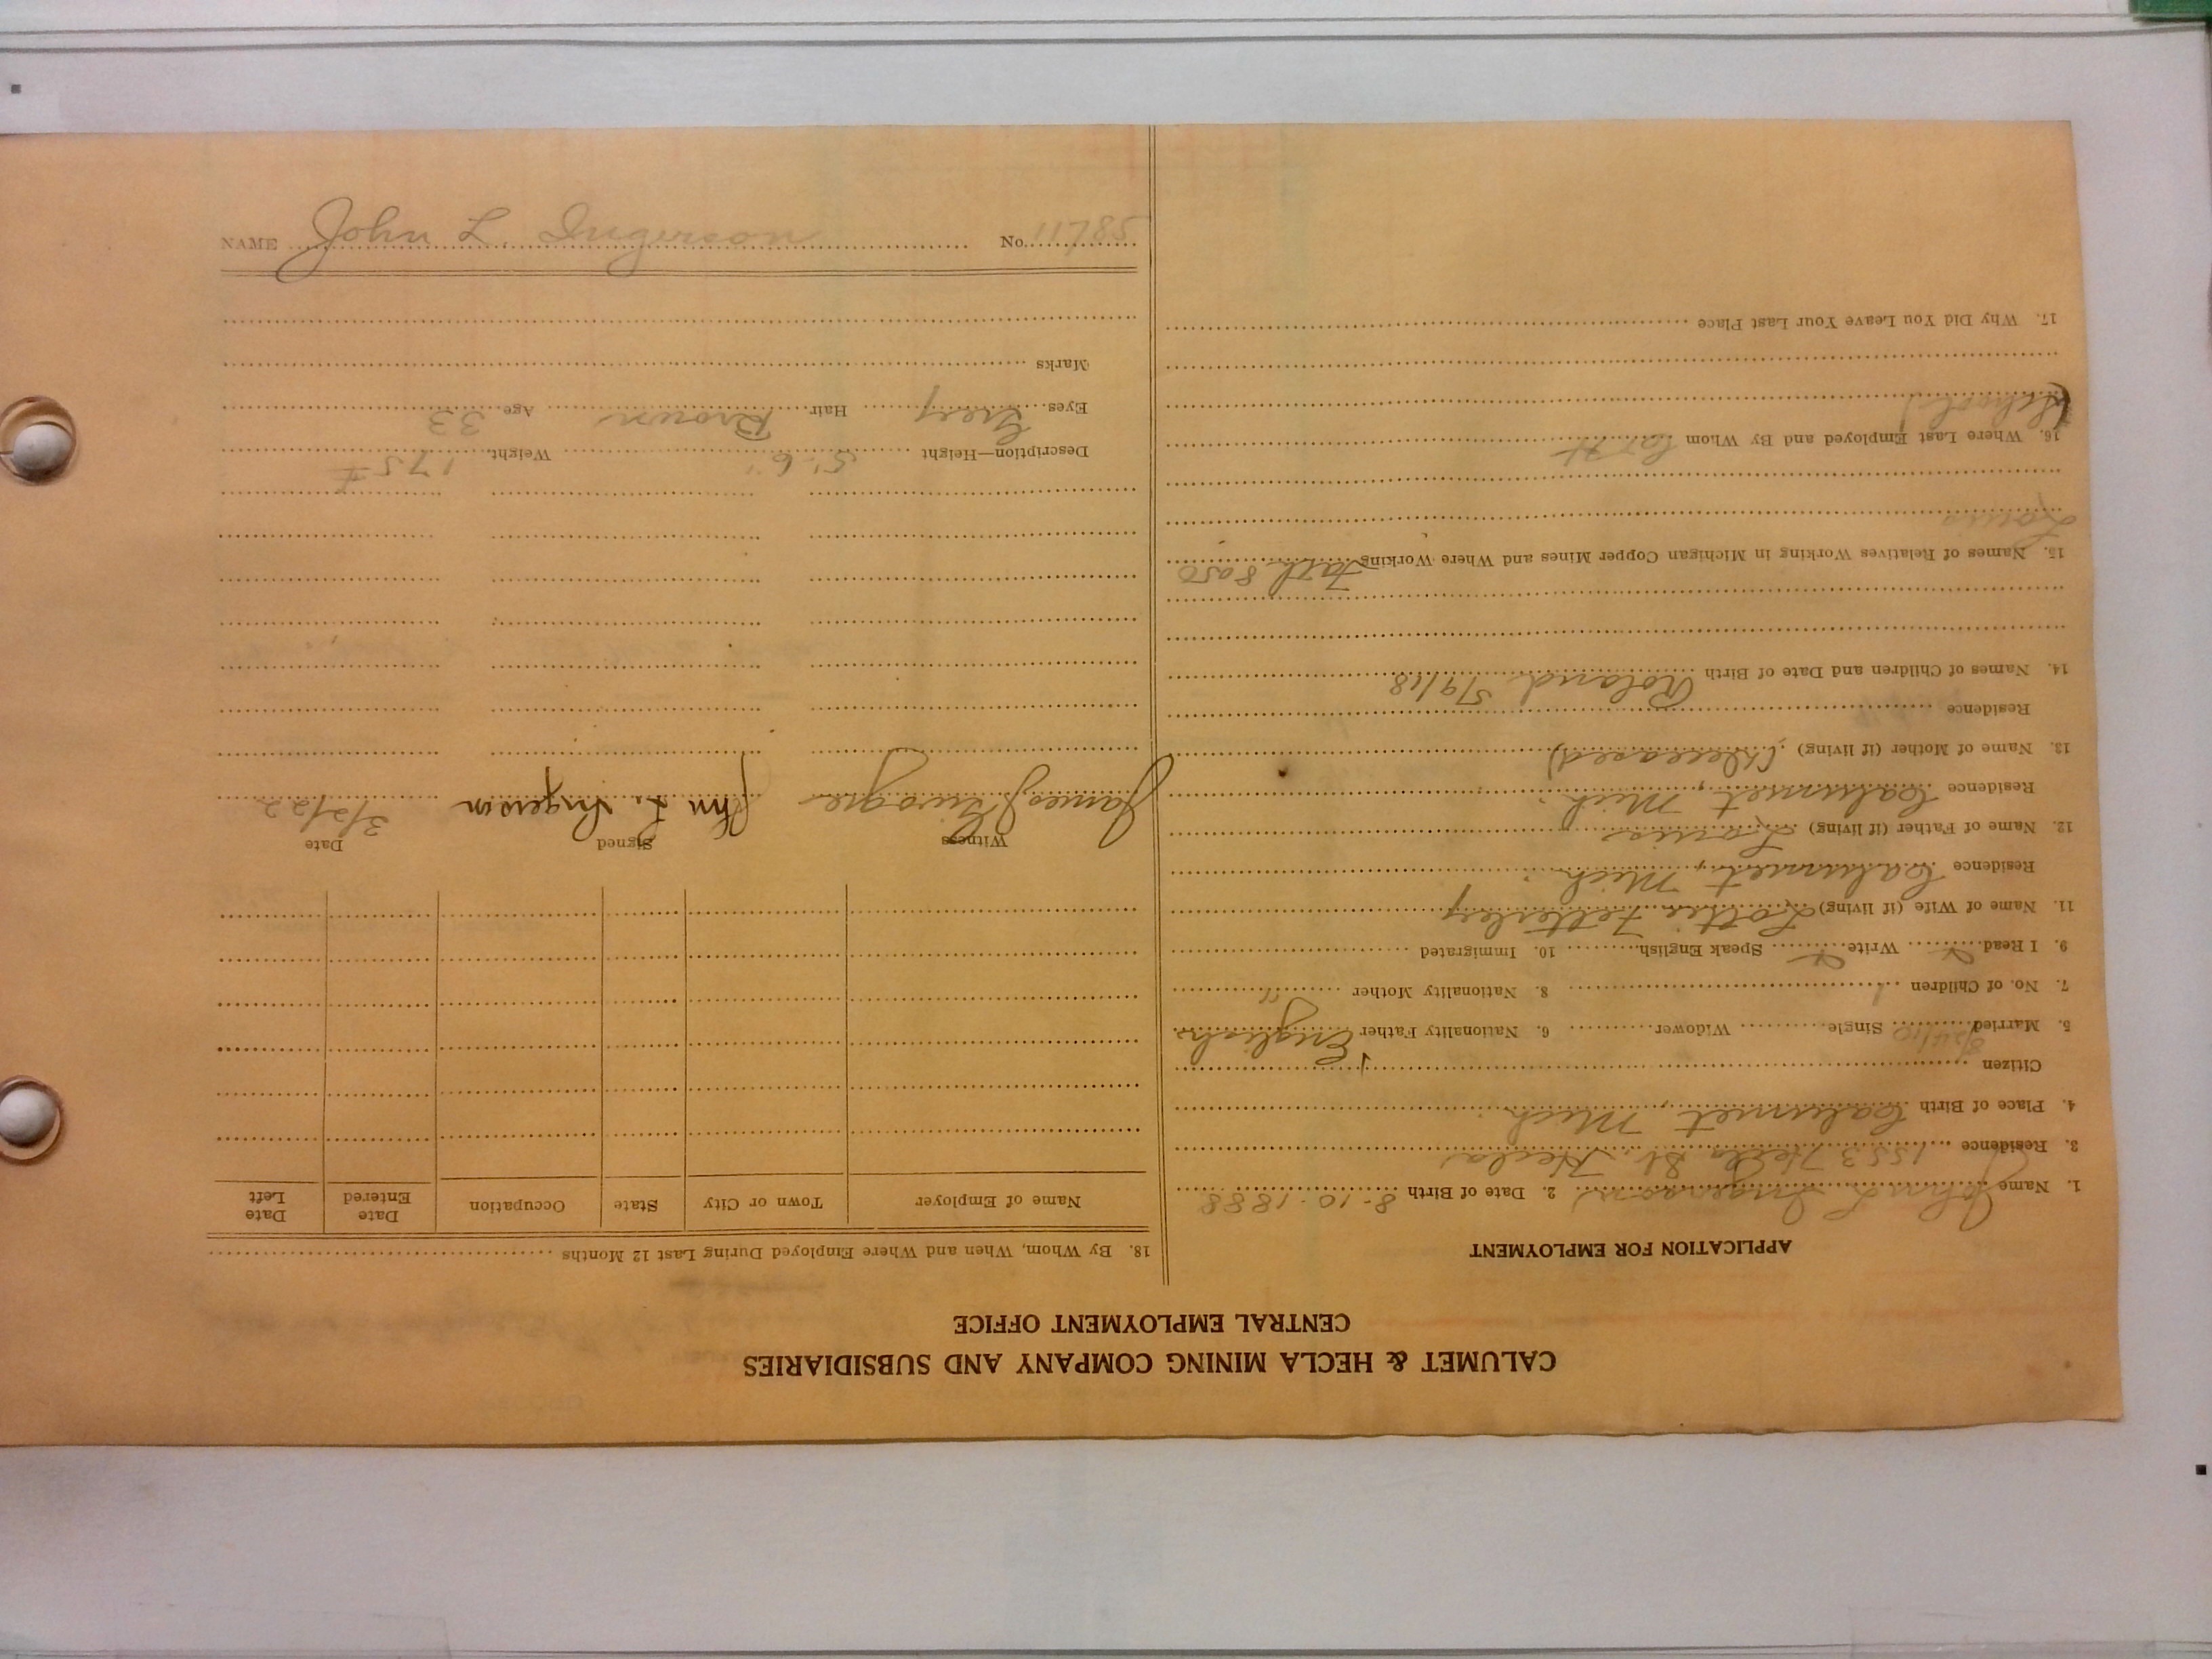 CALUMET & HECLA MINING COMPANY AND SUBSIDIARIES
CENTRAL EMPLOYMENT OFFICE
APPLICATION FOR EMPLOYMENT
1. Name John L Ingerson 2. Date of Birth 8-10-1888
3. Residence 1553 Hecla St. Hecla
4. Place of Birth Calumet, Mich.
Citizen
5. Married 8/24/10 Single Widower 6. Nationality Father English
7. No. of Children 1 8. Nationality Mother "
9. I Read Write Speak English 10. Immigrated
11. Name of Wife (if living) Lottie Fetterley
Residence Calumet, Mich.
12. Name of Father (if living) Louis
Residence Calumet, Mich.
13. Name of Mother (if living) (Deceased)
Residence
14. Names of Children and Date of Birth Roland 5/9/18
15. Names of Relatives Working in Michigan Copper Mines and Where Working Fath 8050
Louis
16. Where Last Employed and By Whom C & H
(School)
17. Why Did You Leave Your Last Place
18. By Whom, When and Where Employed During Last 12 Months
Name of Employer Town or City State Occupation Date Entered Date Left
Witness Signed Date
James J John L. Ingerson 3/2/22
Description—Height 5' 6" Weight 175 #
Eyes Grey Hair Brown Age 33
Marks
NAME John L. Ingerson No. 11785